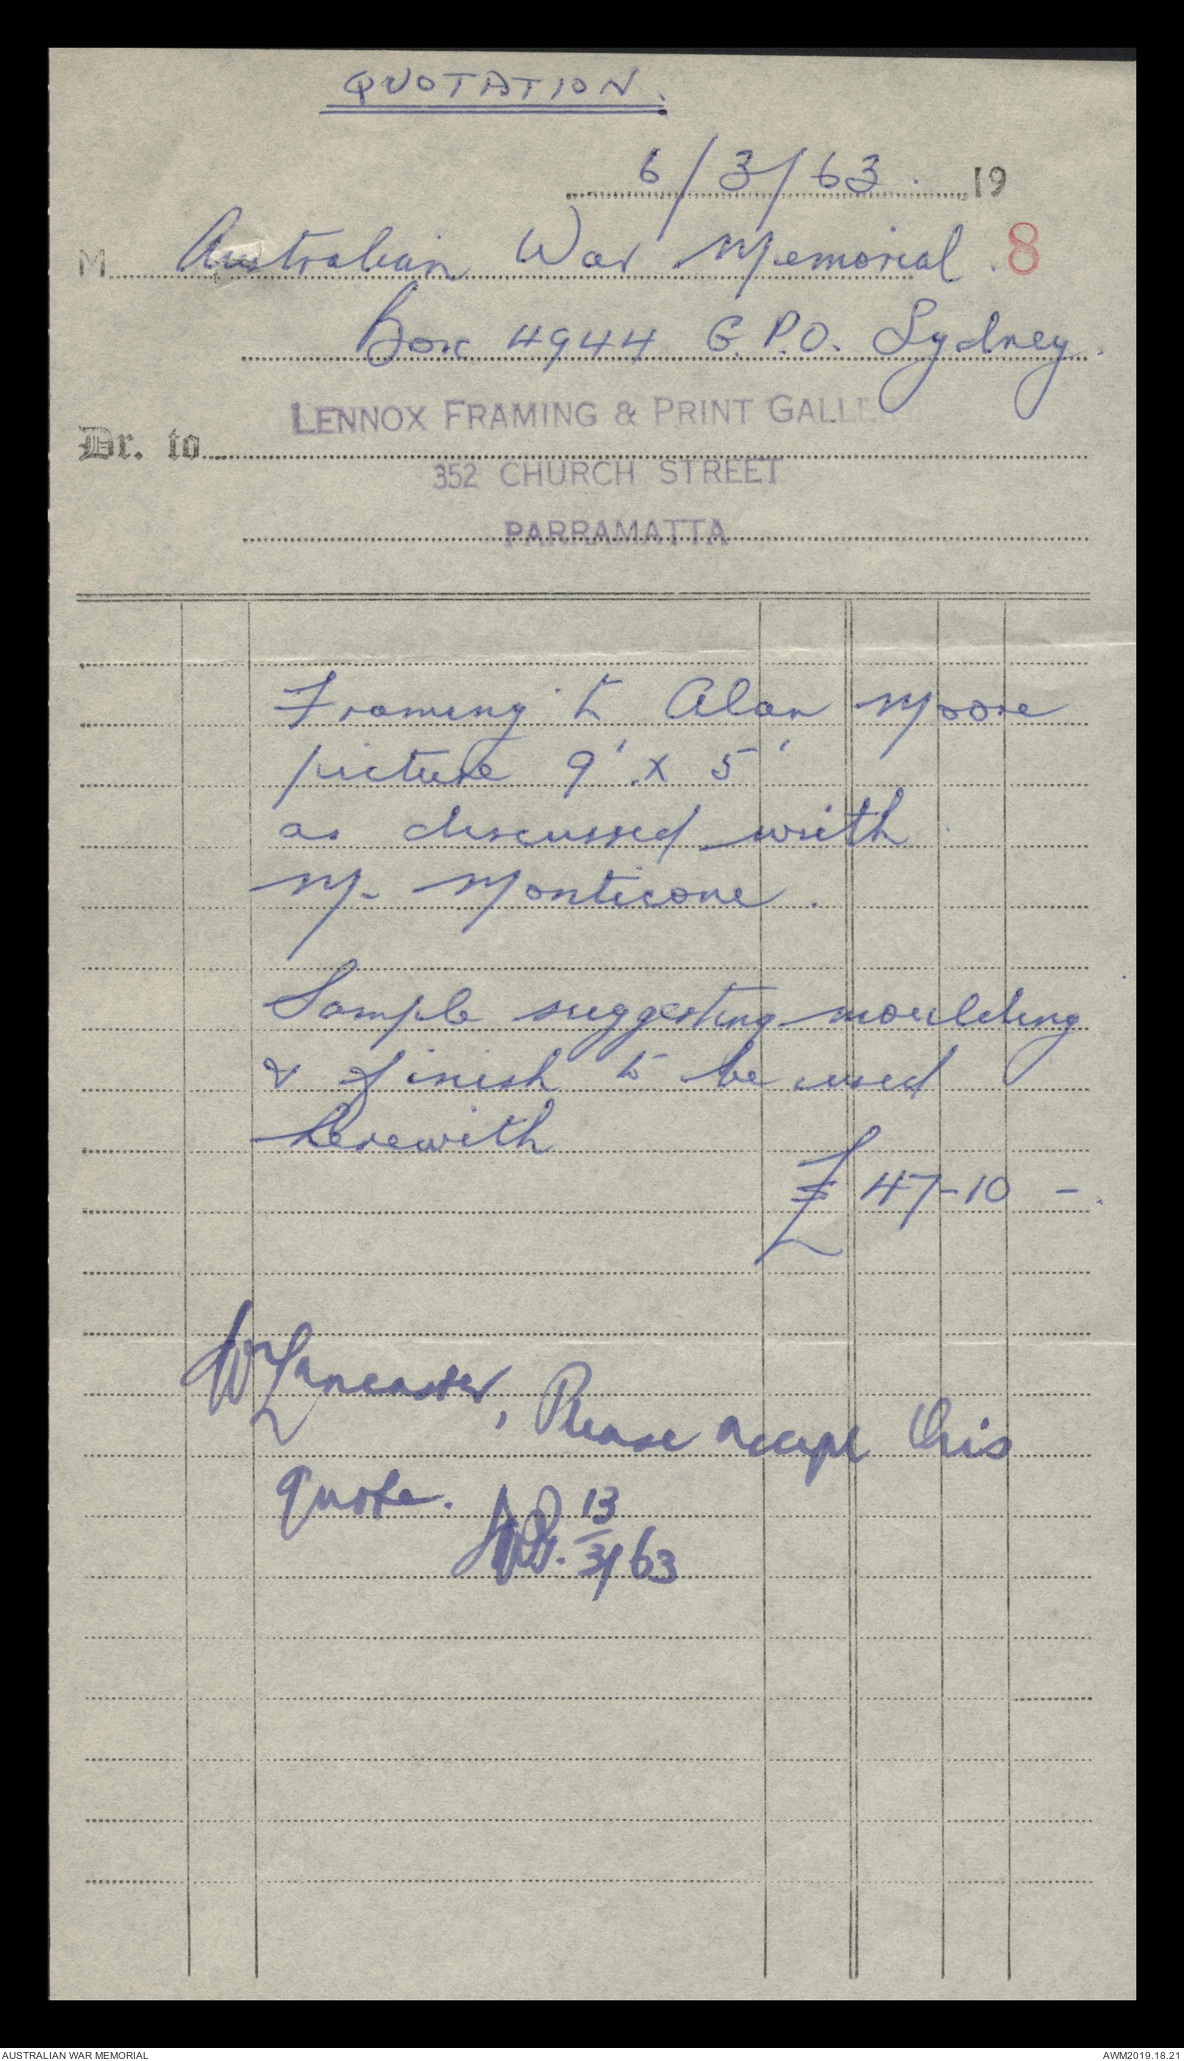 QUOTATION.
6/3/63. 19
M Australian War Memorial. 8
Box 4944 G.P.O. Sydney.
LENNOX FRAMING & PRINT GALLE
Dr. to
352 CHURCH STREET
PARRAMATTA
Framing to Alan Moore
picture 9' x 5'
as discussed with
Mr Monticone.
Sample suggesting moulding
& finish to be used
herewith
£ 47-10 -.
Mr Lancaster, Please accept this
quote.
13
3/63
AUSTRALIAN WAR MEMORIAL
AWM2019.18.21